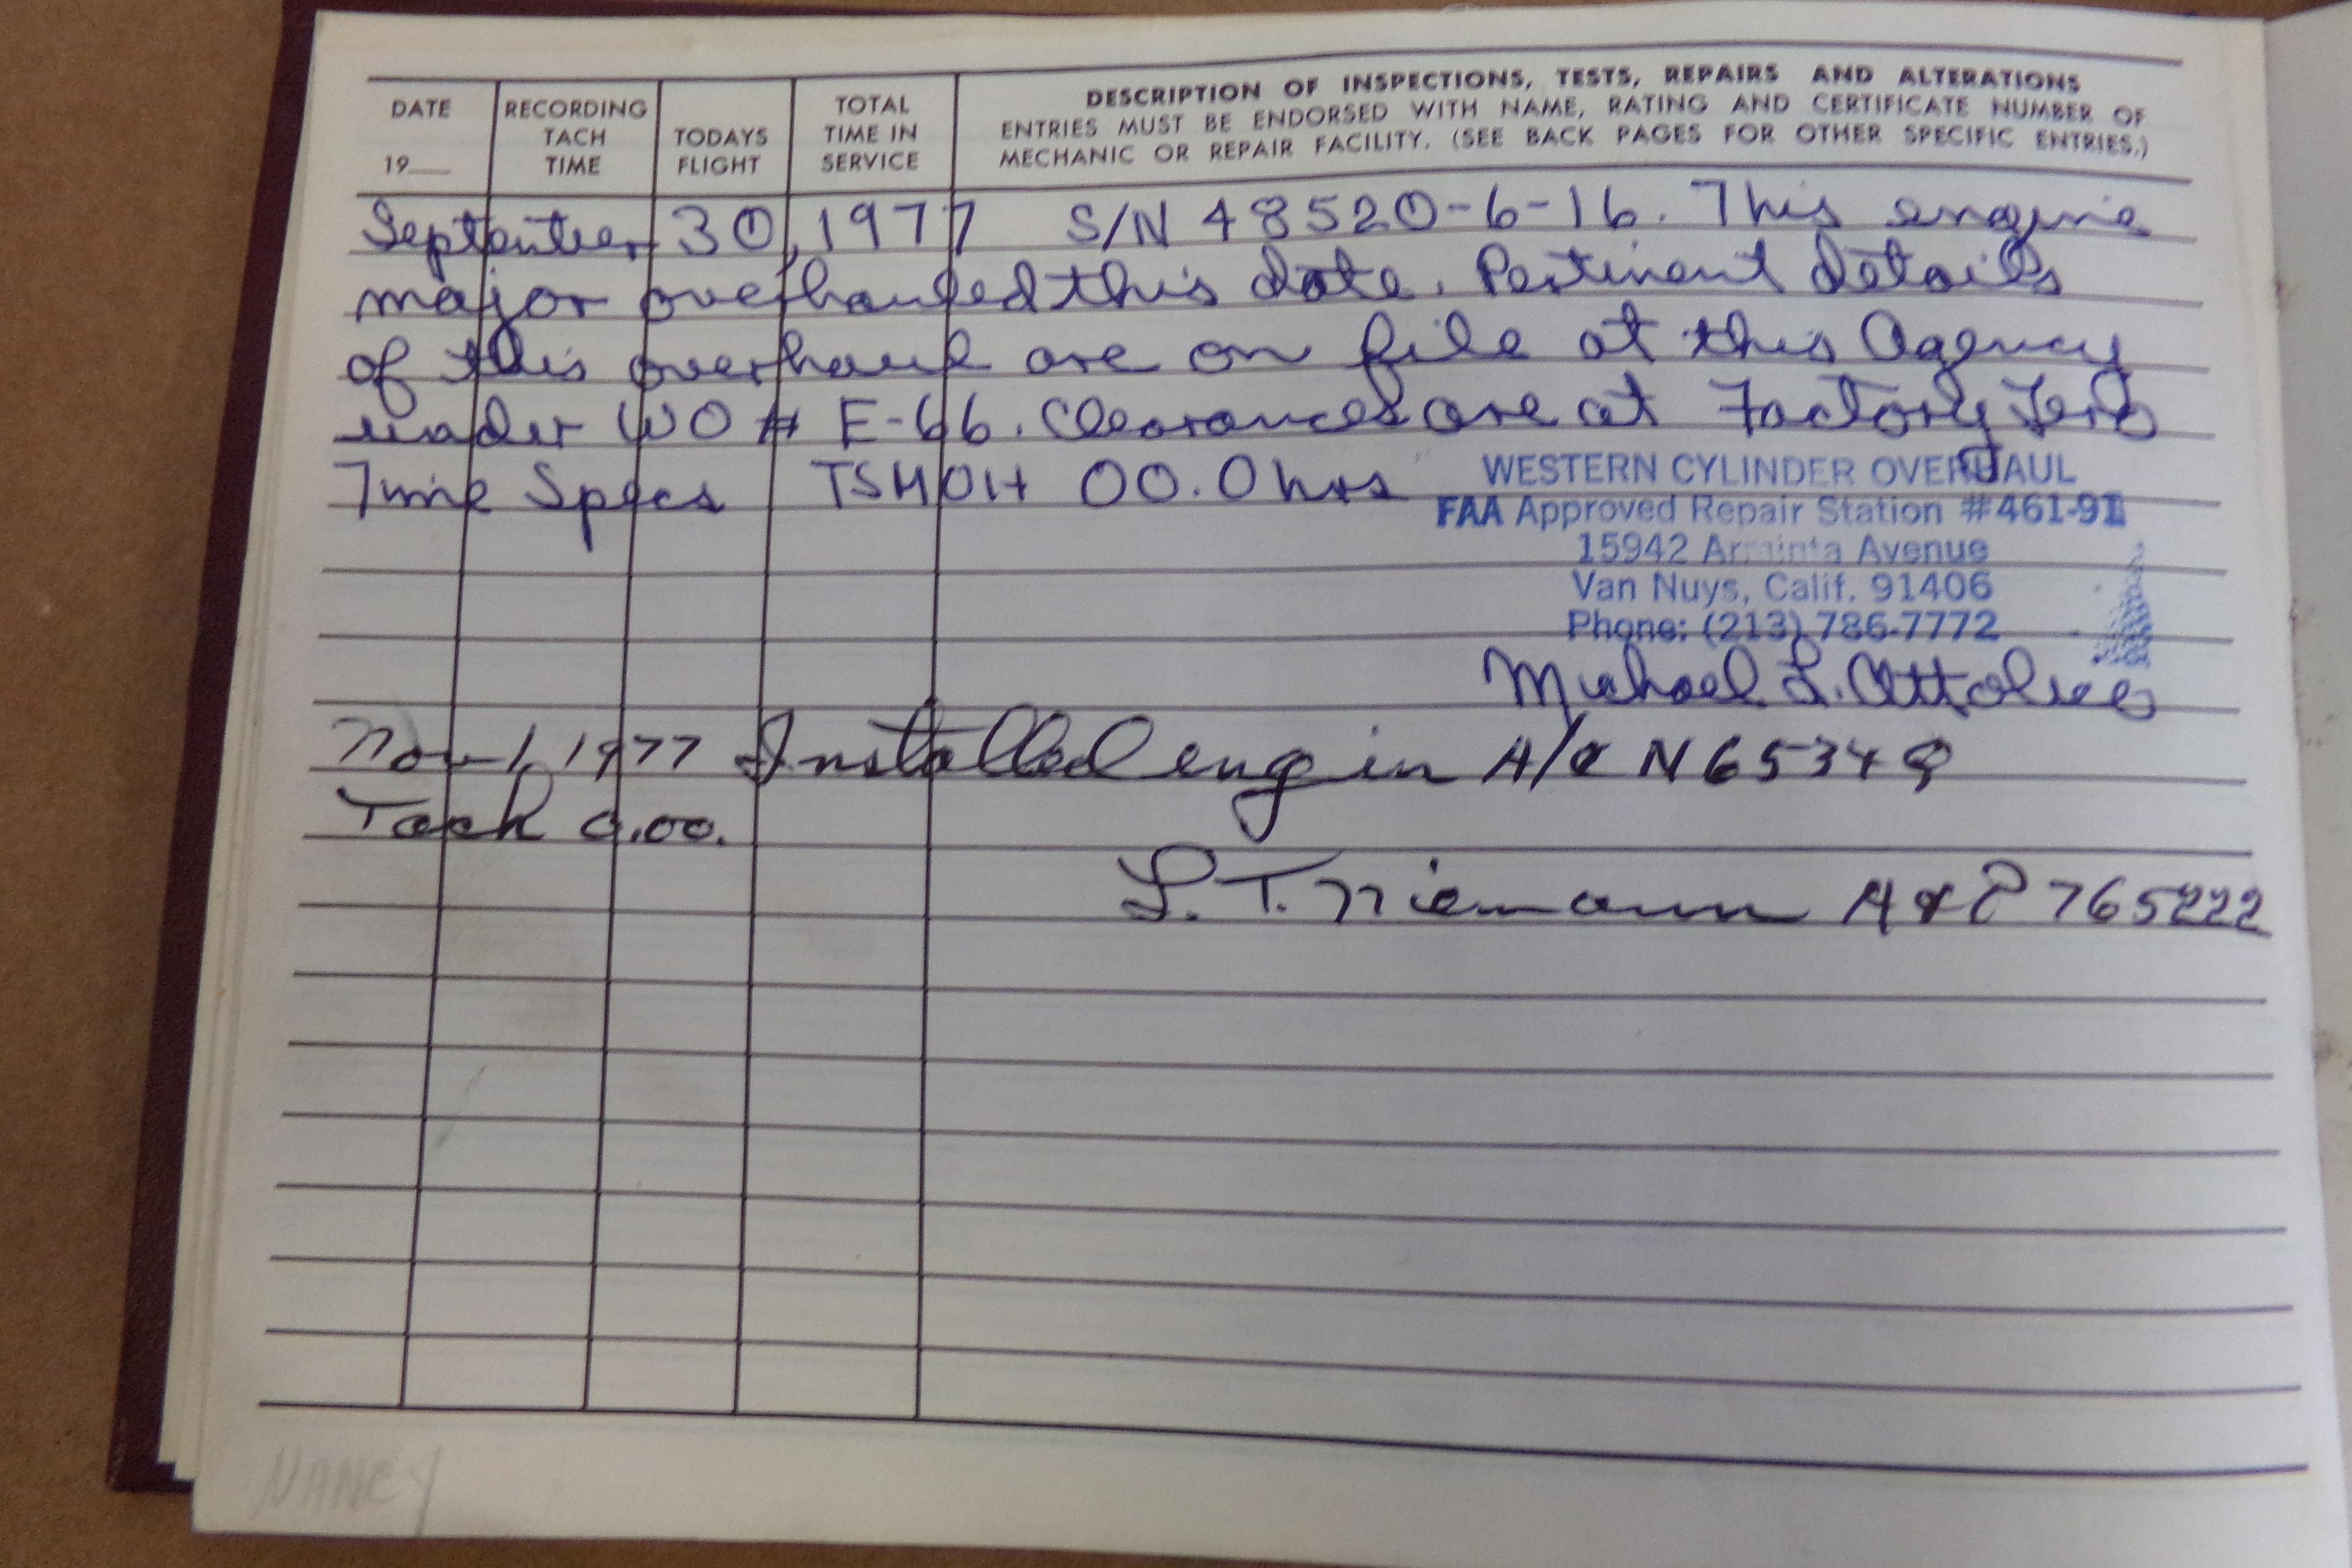 DATE 19__
RECORDING TACH TIME
TODAYS FLIGHT
TOTAL TIME IN SERVICE
DESCRIPTION OF INSPECTIONS, TESTS, REPAIRS AND ALTERATIONS
ENTRIES MUST BE ENDORSED WITH NAME, RATING AND CERTIFICATE NUMBER OF
MECHANIC OR REPAIR FACILITY. (SEE BACK PAGES FOR OTHER SPECIFIC ENTRIES.)
September 30, 1977 S/N 48520-6-16. This engine
major overhauled this date. Pertinent details
of this overhaul are on file at this Agency
under WO # E-66. Clearances are at Factory Zero
Time Specs TSMOH 00.0 hrs
WESTERN CYLINDER OVERHAUL
FAA Approved Repair Station #461-91
15942 Arminta Avenue
Van Nuys, Calif. 91406
Phone: (213) 786-7772
Michael L.
Nov 1, 1977 Installed eng in A/C N65348
Tach 0.00.
L. T. Niemann A & P 765222
NANCY